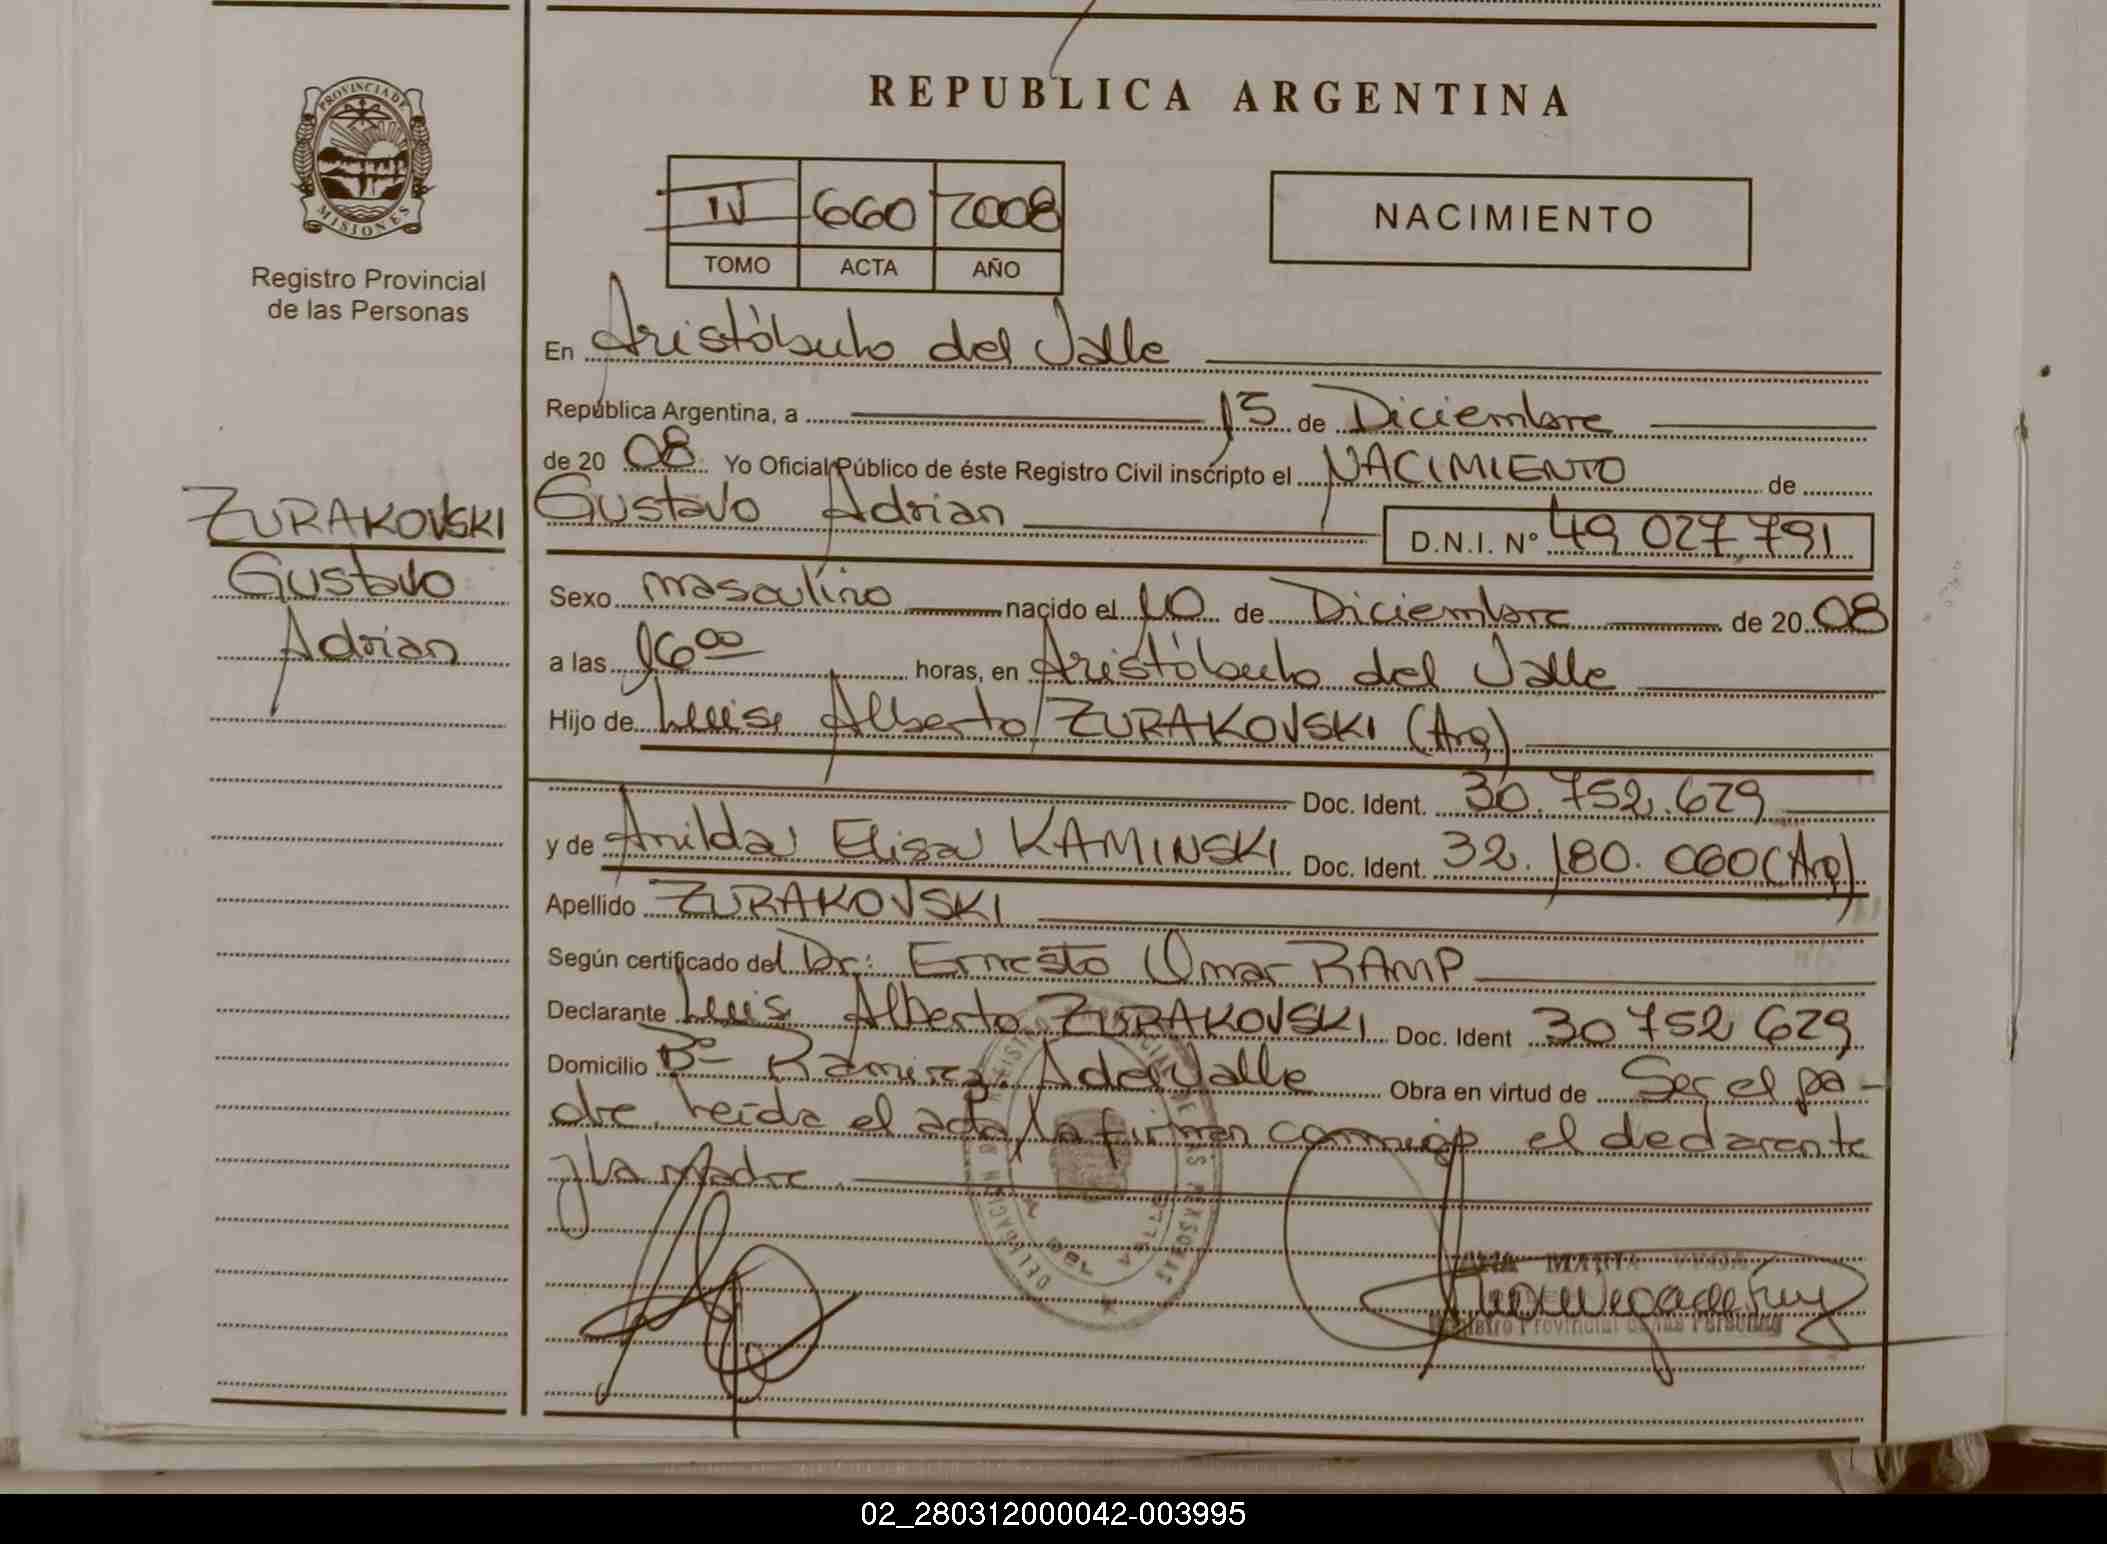 PROVINCIA DE
MISIONES
Registro Provincial
de las Personas
ZURAKOVSKI
Gustavo
Adrian
REPUBLICA ARGENTINA
IV 660 2008
TOMO ACTA AÑO
NACIMIENTO
En Aristóbulo del Valle
República Argentina, a 15 de Diciembre
de 20 08 Yo Oficial Público de éste Registro Civil inscripto el NACIMIENTO de
Gustavo Adrian D.N.I. Nº 49 027.791
Sexo masculino nacido el 10 de Diciembre de 20 08
a las 16 00 horas, en Aristóbulo del Valle
Hijo de Luis Alberto ZURAKOVSKI (Arg)
Doc. Ident. 30.752.629
y de Anilda Elisa KAMINSKI Doc. Ident. 32.180.060 (Arg)
Apellido ZURAKOVSKI
Según certificado del Dr: Ernesto Omar RAMP
Declarante Luis Alberto ZURAKOVSKI Doc. Ident 30 752 629
Domicilio Bº Ramirez. A del Valle Obra en virtud de Ser el pa-
dre. Leida el acta la firman conmigo el declarante
y La Madre.
ANA MARIA
Registro Provincial de las Personas
02_280312000042-003995